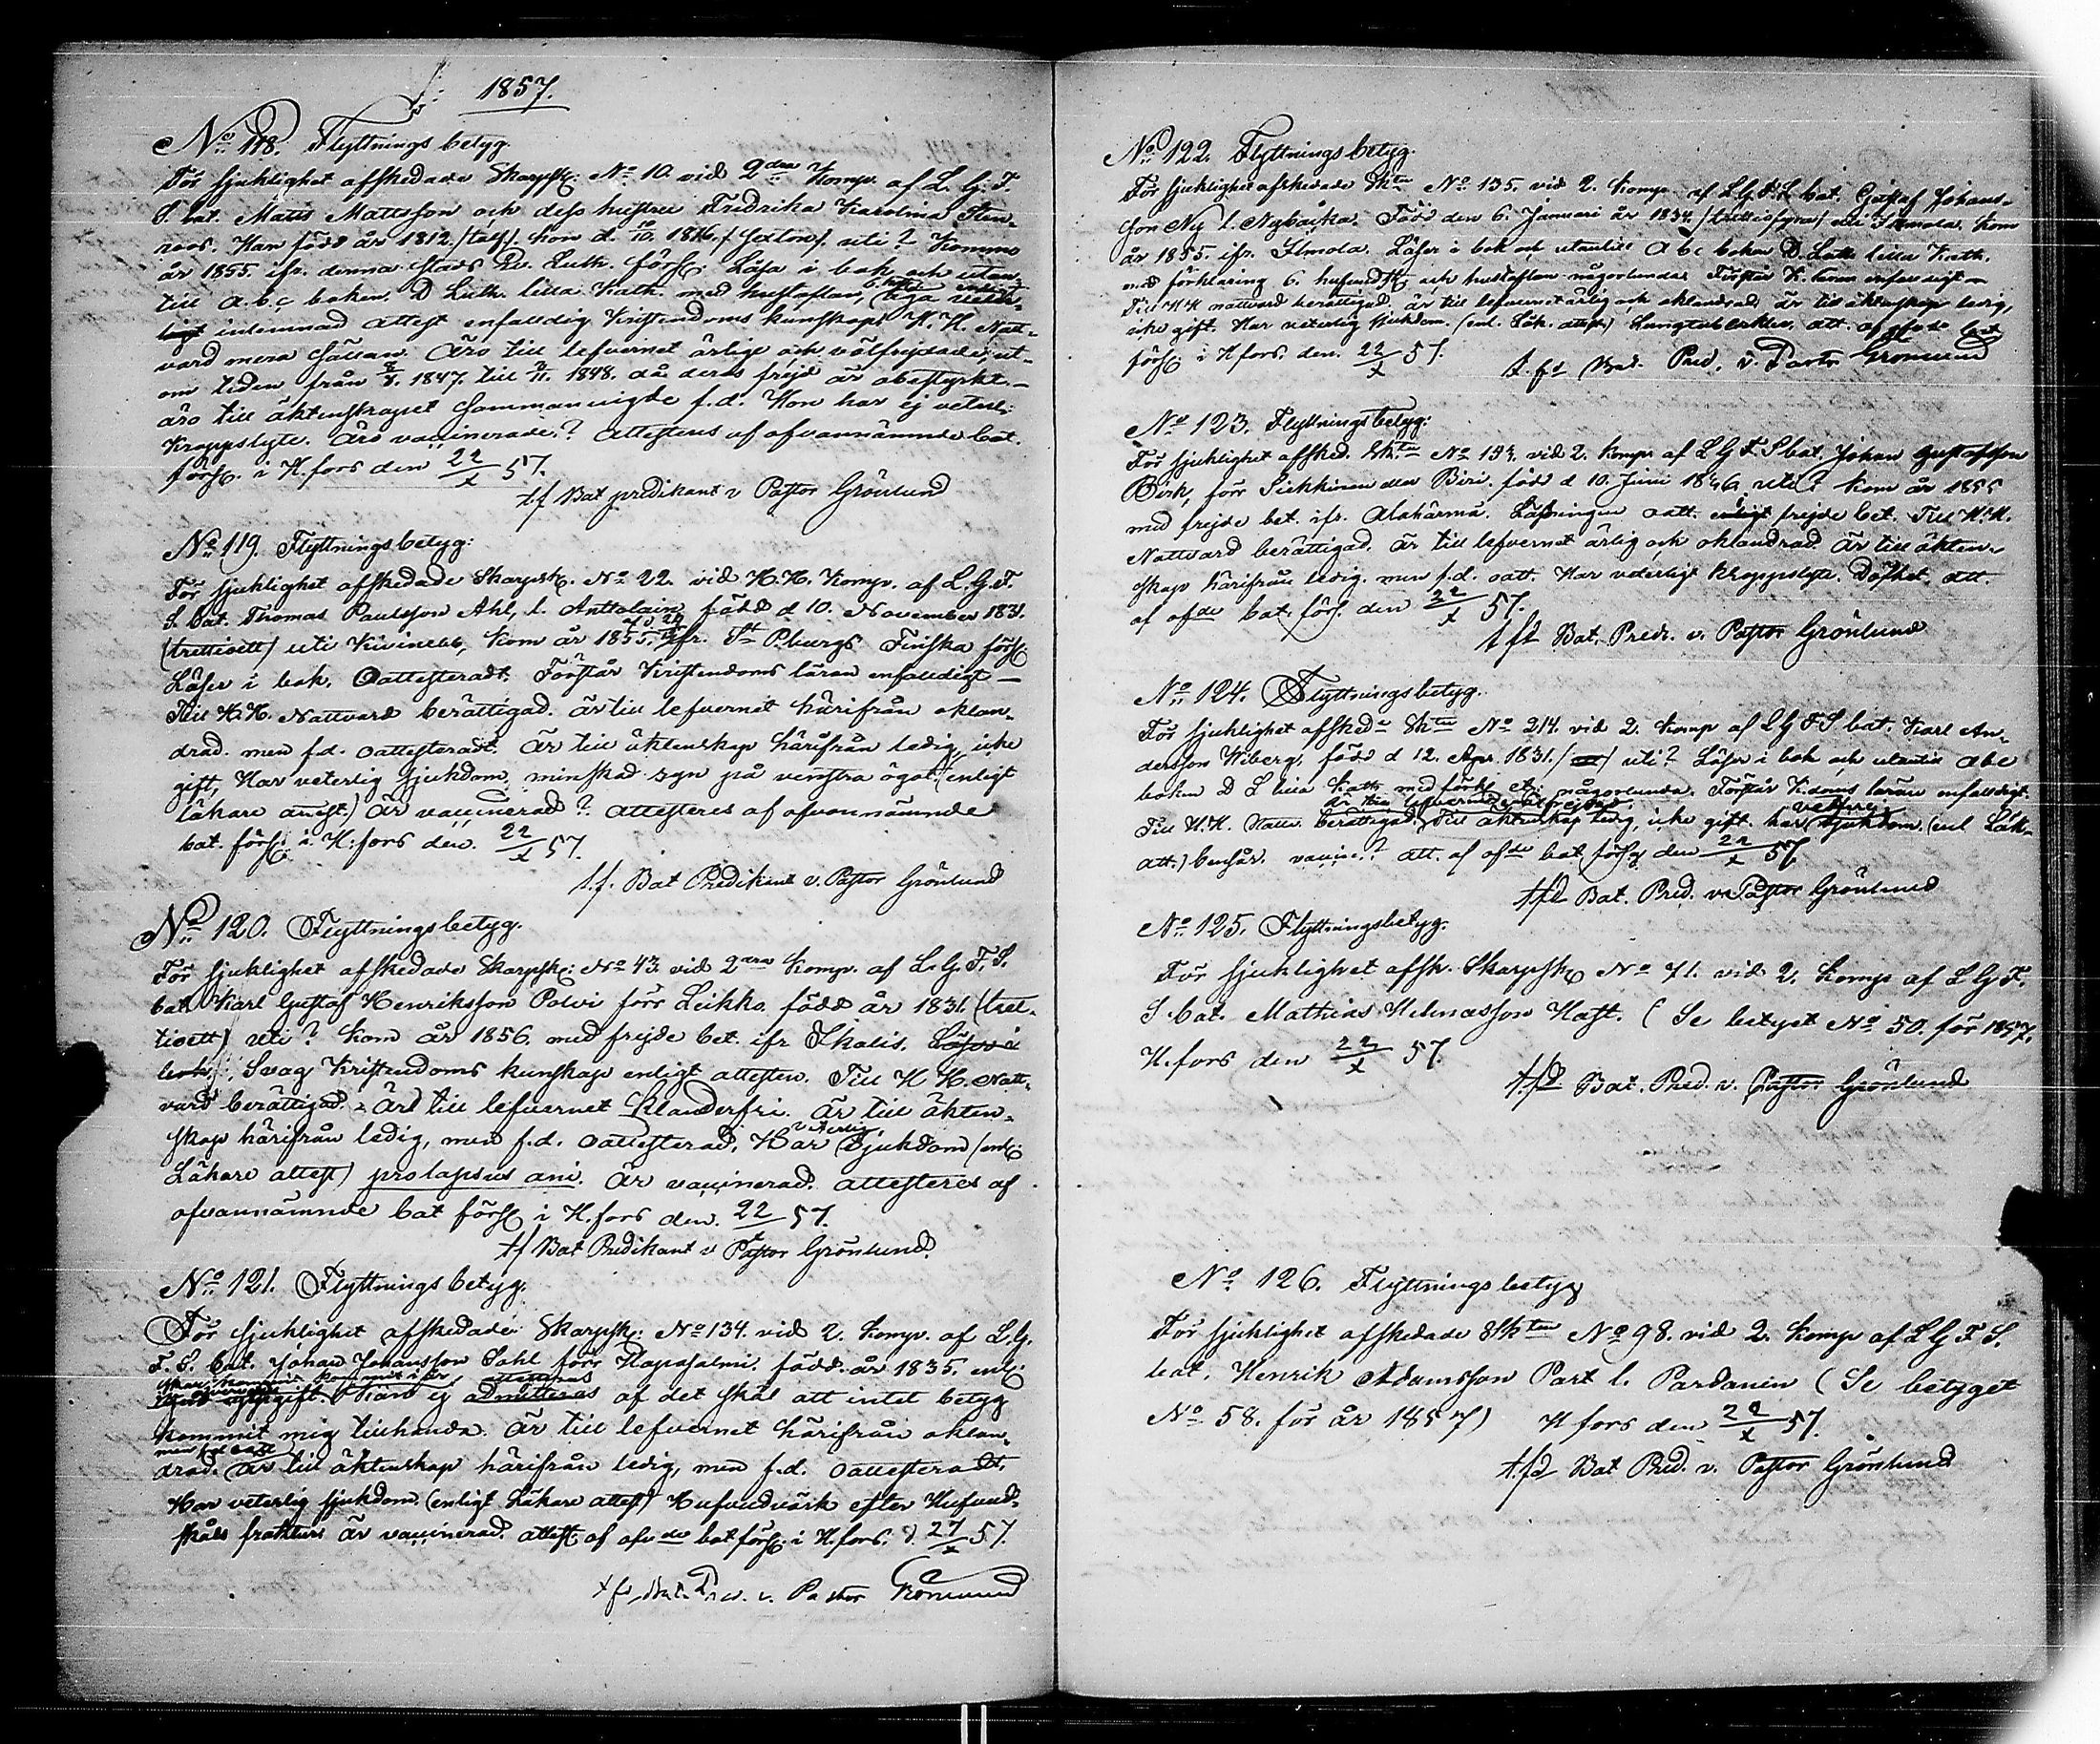 1857.
No 118. Flyttningsbetyg.
För sjuklighet afskedade Skarpsk: No 10. vid 2dra Komp. af L. G. F.
S. bat. Matts Mattsson och dess hustru Fredrika Karolina Sten-
roos. Han född år 1812. /tolf/. hon d. 1816. / sexton/. uti? Kommo
år 1855. ifr. denna stads Ev. Luth. förs: Läsa i bok och utan-
till a.b.c boken. D Luth. lilla Kath. med hustaflan, äga
inlemnad attest enfaldig Kristendoms kunskap. H. H. Natt-
vard mera sällan. Äro till lefvernet ärlige och välfrejdade, ut-
om tiden från 1847. till 1848. då deras frejd är obestyrkt. —
äro till äktenskapet sammanvigde f.d. Hon har ej veterl:
Kroppslyte. Äro vaccinerade? Attesteras af ofvannämnde bat.
förs: i H.fors den 22/X 57.
t.f Bat predikant v Pastor Grönlund
No 119. Flyttningsbetyg:
För sjuklighet afskedade Skarpsk. No 22. vid H.H. Komp. af L. G. F.
S. bat. Thomas Paulsson Ahl, l. Anttolain född d 10. November 1831.
(trettioett) uti Kivinebb, Kom år 1855. ifr. St P.burgs Finska förs:
Läser i bok. Oattesteradt. Förstår Kristendoms läran enfaldigt —
Till H.H. Nattvard berättigad. är till lefvernet härifrån oklan-
drad. men f.d. oattesteradt. Är till äktenskap härifrån ledig, icke
gift, Har veterlig sjukdom, minskad syn på venstra ögat (enligt
läkare attest.) Är vaccinerad? attesteres af ofvannämnde
bat. förs: i H:fors den. 22/X 57.
t.f. Bat Predikant v. Pastor Grönlund
No 120. Flyttningsbetyg.
För sjuklighet afskedade Skarpsk: No 43. vid 2dra Komp. af L. G. F. S.
bat. Karl Gustaf Henriksson Polvi förr Leikko. född år 1831. (tret-
tioett) uti? Kom år 1856. med frejde bet. ifr Ikalis. Läser i
bok. Svag Kristendoms kunskap enligt attesten. Till H H. Natt-
vard berättigad. Är till lefvernet Klanderfri. är till äkten-
skap härifrån ledig, men f.d. oattesterad, Har veterlig Sjukdom (enl:
Läkare attest) prolapsus ani. Är vaccinerad. attesteres af
ofvannämnde bat förs: i H.fors den. 22/X 57.
t.f Bat Predikant v Pastor Grönlund.
No 121. Flyttningsbetyg.
För sjuklighet afskedade Skarpsk: No 134. vid 2. Komp. af L. G.
F. S. bat. Johan Johansson Dahl förr Haposalmi. född år 1835. enl:
uppgift. Kan ej admitteras af det skäl att intet betyg
kommit mig tillhanda. Är till lefvernet härifrån oklan-
drad. är till äktenskap härifrån ledig, men f.d. oattesteradt.
Har veterlig sjukdom (enligt Läkare attest) Hufvudvärk efter Hufvud-
skåls fraktur. är vaccinerad. attest. af ofvde bat förs: i H.fors. d. 27/X 57.
t.f. Bat. Pred. v. Pastor Grönlund
No 122. Flyttningsbetyg.
För sjuklighet afskedade Skten No 135. vid 2. Komp. af L. G. F. S. bat. Gustaf Johans-
son Ny l. Nybacka. Född den 6. Januari år 1834. /trettiofyra/ uti Ilmola. Kom
år 1855. ifr. Ilmola. Läser i bok och utantill a b c boken D. Luth. lilla Kath.
med förklaring 6. hufvudst: och hustaflan någorlunda. Förstår K. läran enfaldigt.
Till H H nattvard berättigad. är till lefvernet ärlig och oklandrad. är till äktenskap ledig,
icke gift. Har veterlig sjukdom. (enl. Läk. attest) Lungtuberkler. att. af ofvde bat
förs: i H.fors. den. 22/X 57.
t. fd Bat. Pred. v. Pastor Grönlund
No 123. Flyttningsbetyg:
För sjuklighet afsked. Skten No 193. vid 2. Komp. af L G F S bat. Johan Gustafsson
Birk, förr Sikkinen eller Biri. född d 10. Juni 1826 uti? Kom år 1855
med frejde bet. ifr. Alahärmä. Läsningen oatt. enligt frejde bet. Till H.H.
Nattvard berättigad. är till lefvernet ärlig och oklandrad. Är till äkten-
skap härifrån ledig. men f.d. oatt. Har veterligt kroppslyte. Döfhet. att.
af ofvde bat. förs. den 22/X 57.
t fd Bat. Predr. v. Pastor Grönlund
No 124. Flyttningsbetyg.
För sjuklighet afskede Skten No 214. vid 2. Komp af L G F. S bat. Karl An-
dersson Wiberg, född d 12. Apr. 1831. uti? Läser i bok och utantill abc
boken D L lilla Kath. med förkl. etc: någorlunda. Förstår K.doms läran enfaldigt.
är till lefvernet välfrejdad
Till H.H. Nattv. berättigad, Till äktenskap ledig, icke gift. har veterlig sjukdom. (enl Läk-
att.) bensår. vaccin.? att. af ofde bat förs: den 22/X 57.
t.fd Bat. Pred. v. Pastor Grönlund
No 125. Flyttningsbetyg.
För sjuklighet afsk. Skarpsk: No 71. vid 2. Komp af L G F.
S. bat. Mathias Helmersson Hast. (Se betyget No 50. för 1857.
H.fors den 22/X 57.
t.fd Bat. Pred. v. Pastor Grönlund
No 126. Flyttningsbetyg
För sjuklighet afskedade Skten No 98. vid 2. Komp af L G F S.
bat. Henrik Adamsson Part l. Pardanen (Se betyget
No 58. för år 1857) H fors den 22/X 57.
t.fd Bat Pred. v. Pastor Grönlund